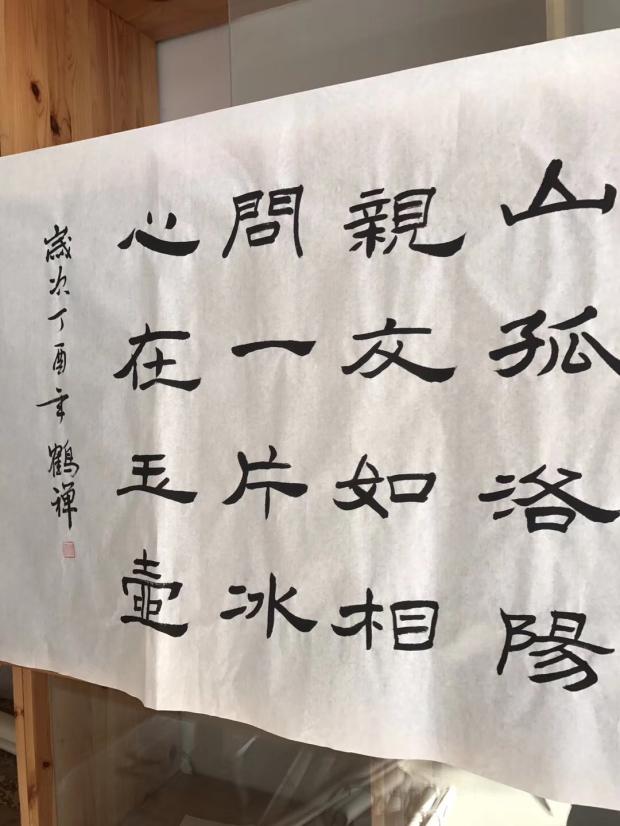 山孤洛陽
親友如相
問一片冰
心在玉壺
歲次丁酉年鶴禅